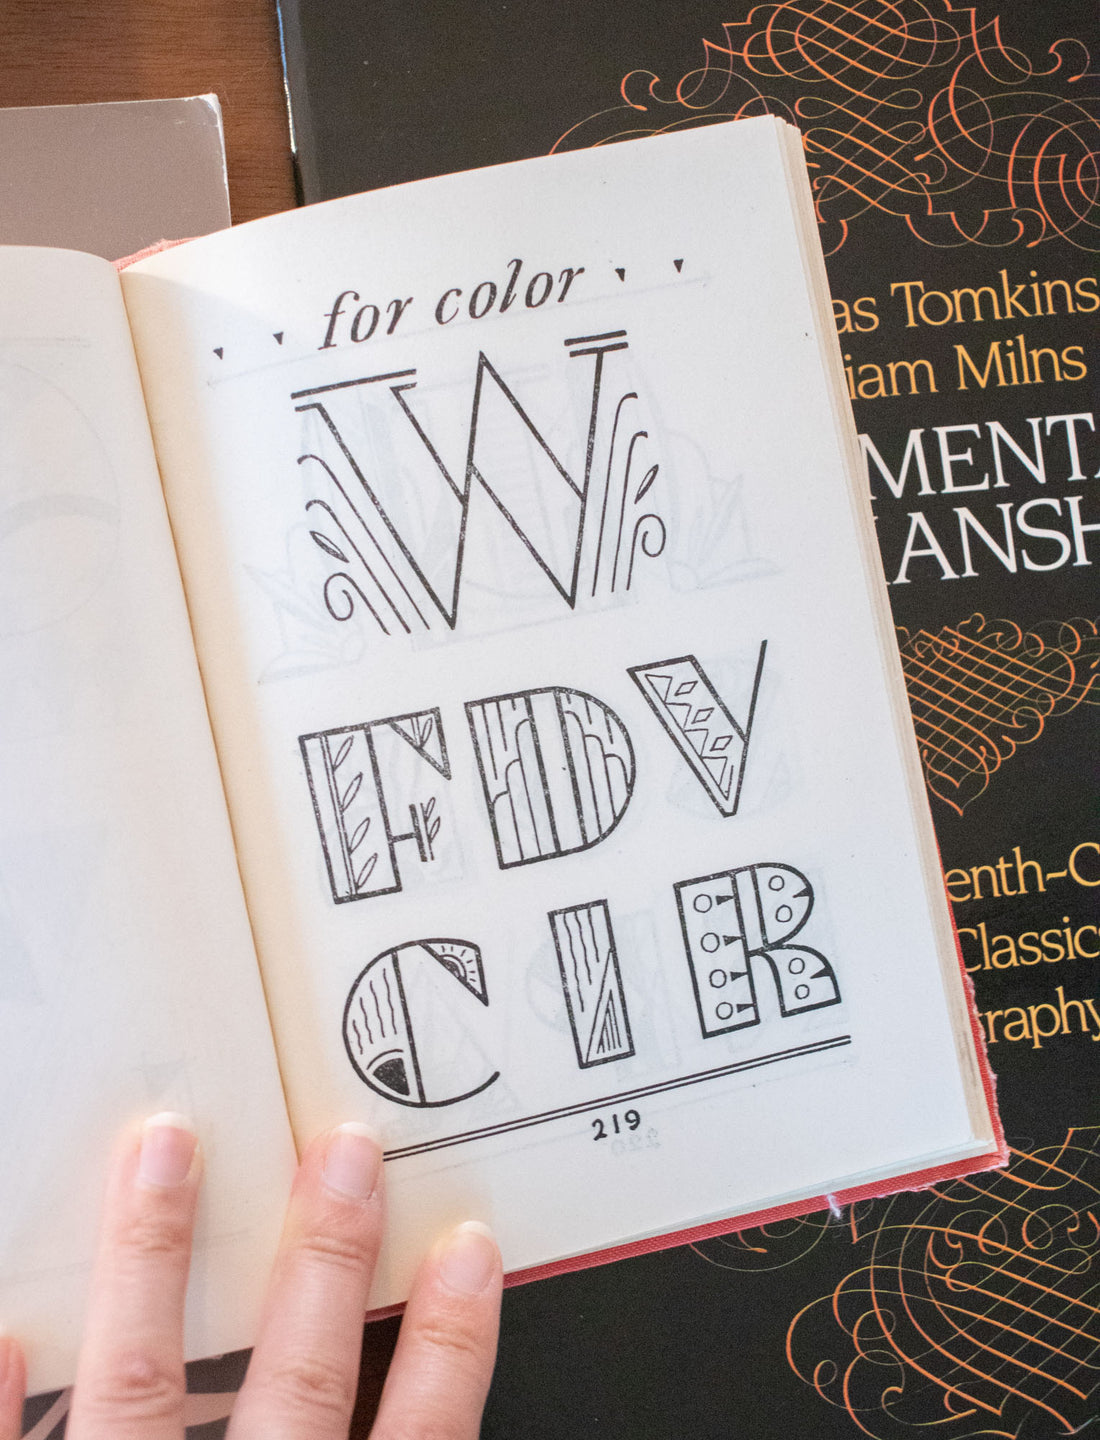 for color
W
F D V
C I R
219
as Tomkins
iam Milns
MENTA
ANSH
enth-C
Classics
graphy